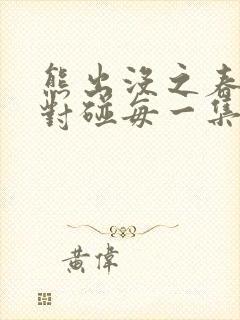 熊出沒之春
對碰每一集
黃偉